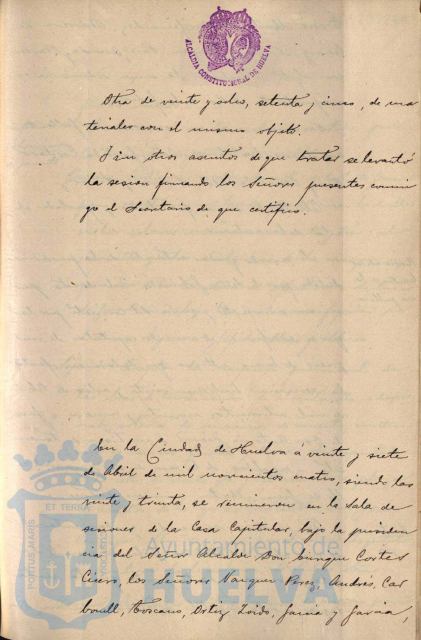 ALCALDIA CONSTITUCIONAL DE HUELVA
Otra de veinte y ocho, setenta y cinco, de ma
teriales con el mismo objeto.
Y sin otros asuntos de que tratar se levantó
la sesion firmando los Señores presentes conmi
go el Secretario de que certifico.
En la Ciudad de Huelva á veinte y siete
de Abril de mil novecientos cuatro, siendo las
veinte y treinta, se reunieron en la Sala de
sesiones de la Casa Capitular, bajo la presiden
cia del Señor Alcalde Don Enrique Cortes
los Señores Vazquez Perez, Andrés, Car
bonell, Toscano, Ortiz García y García,
PORTUS MARIS
ET TERRAE
Ayuntamiento de
HUELVA